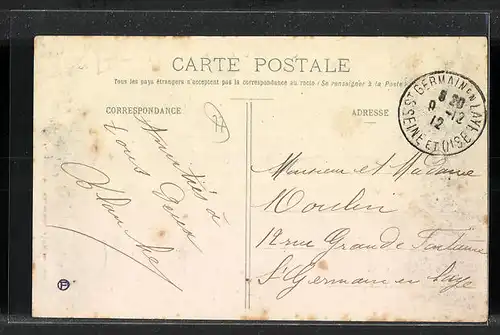 CARTE POSTALE
Tous les pays étrangers n'acceptent pas la correspondance au recto (Se renseigner à la Poste)
CORRESPONDANCE
ADRESSE
ST GERMAIN EN LAYE
8 30
9 -12
12
SEINE ET OISE
Amitiés à
tous deux
Blanche
Monsieur et Madame
Moulin
12 rue Grande Fontaine
St Germain en Laye